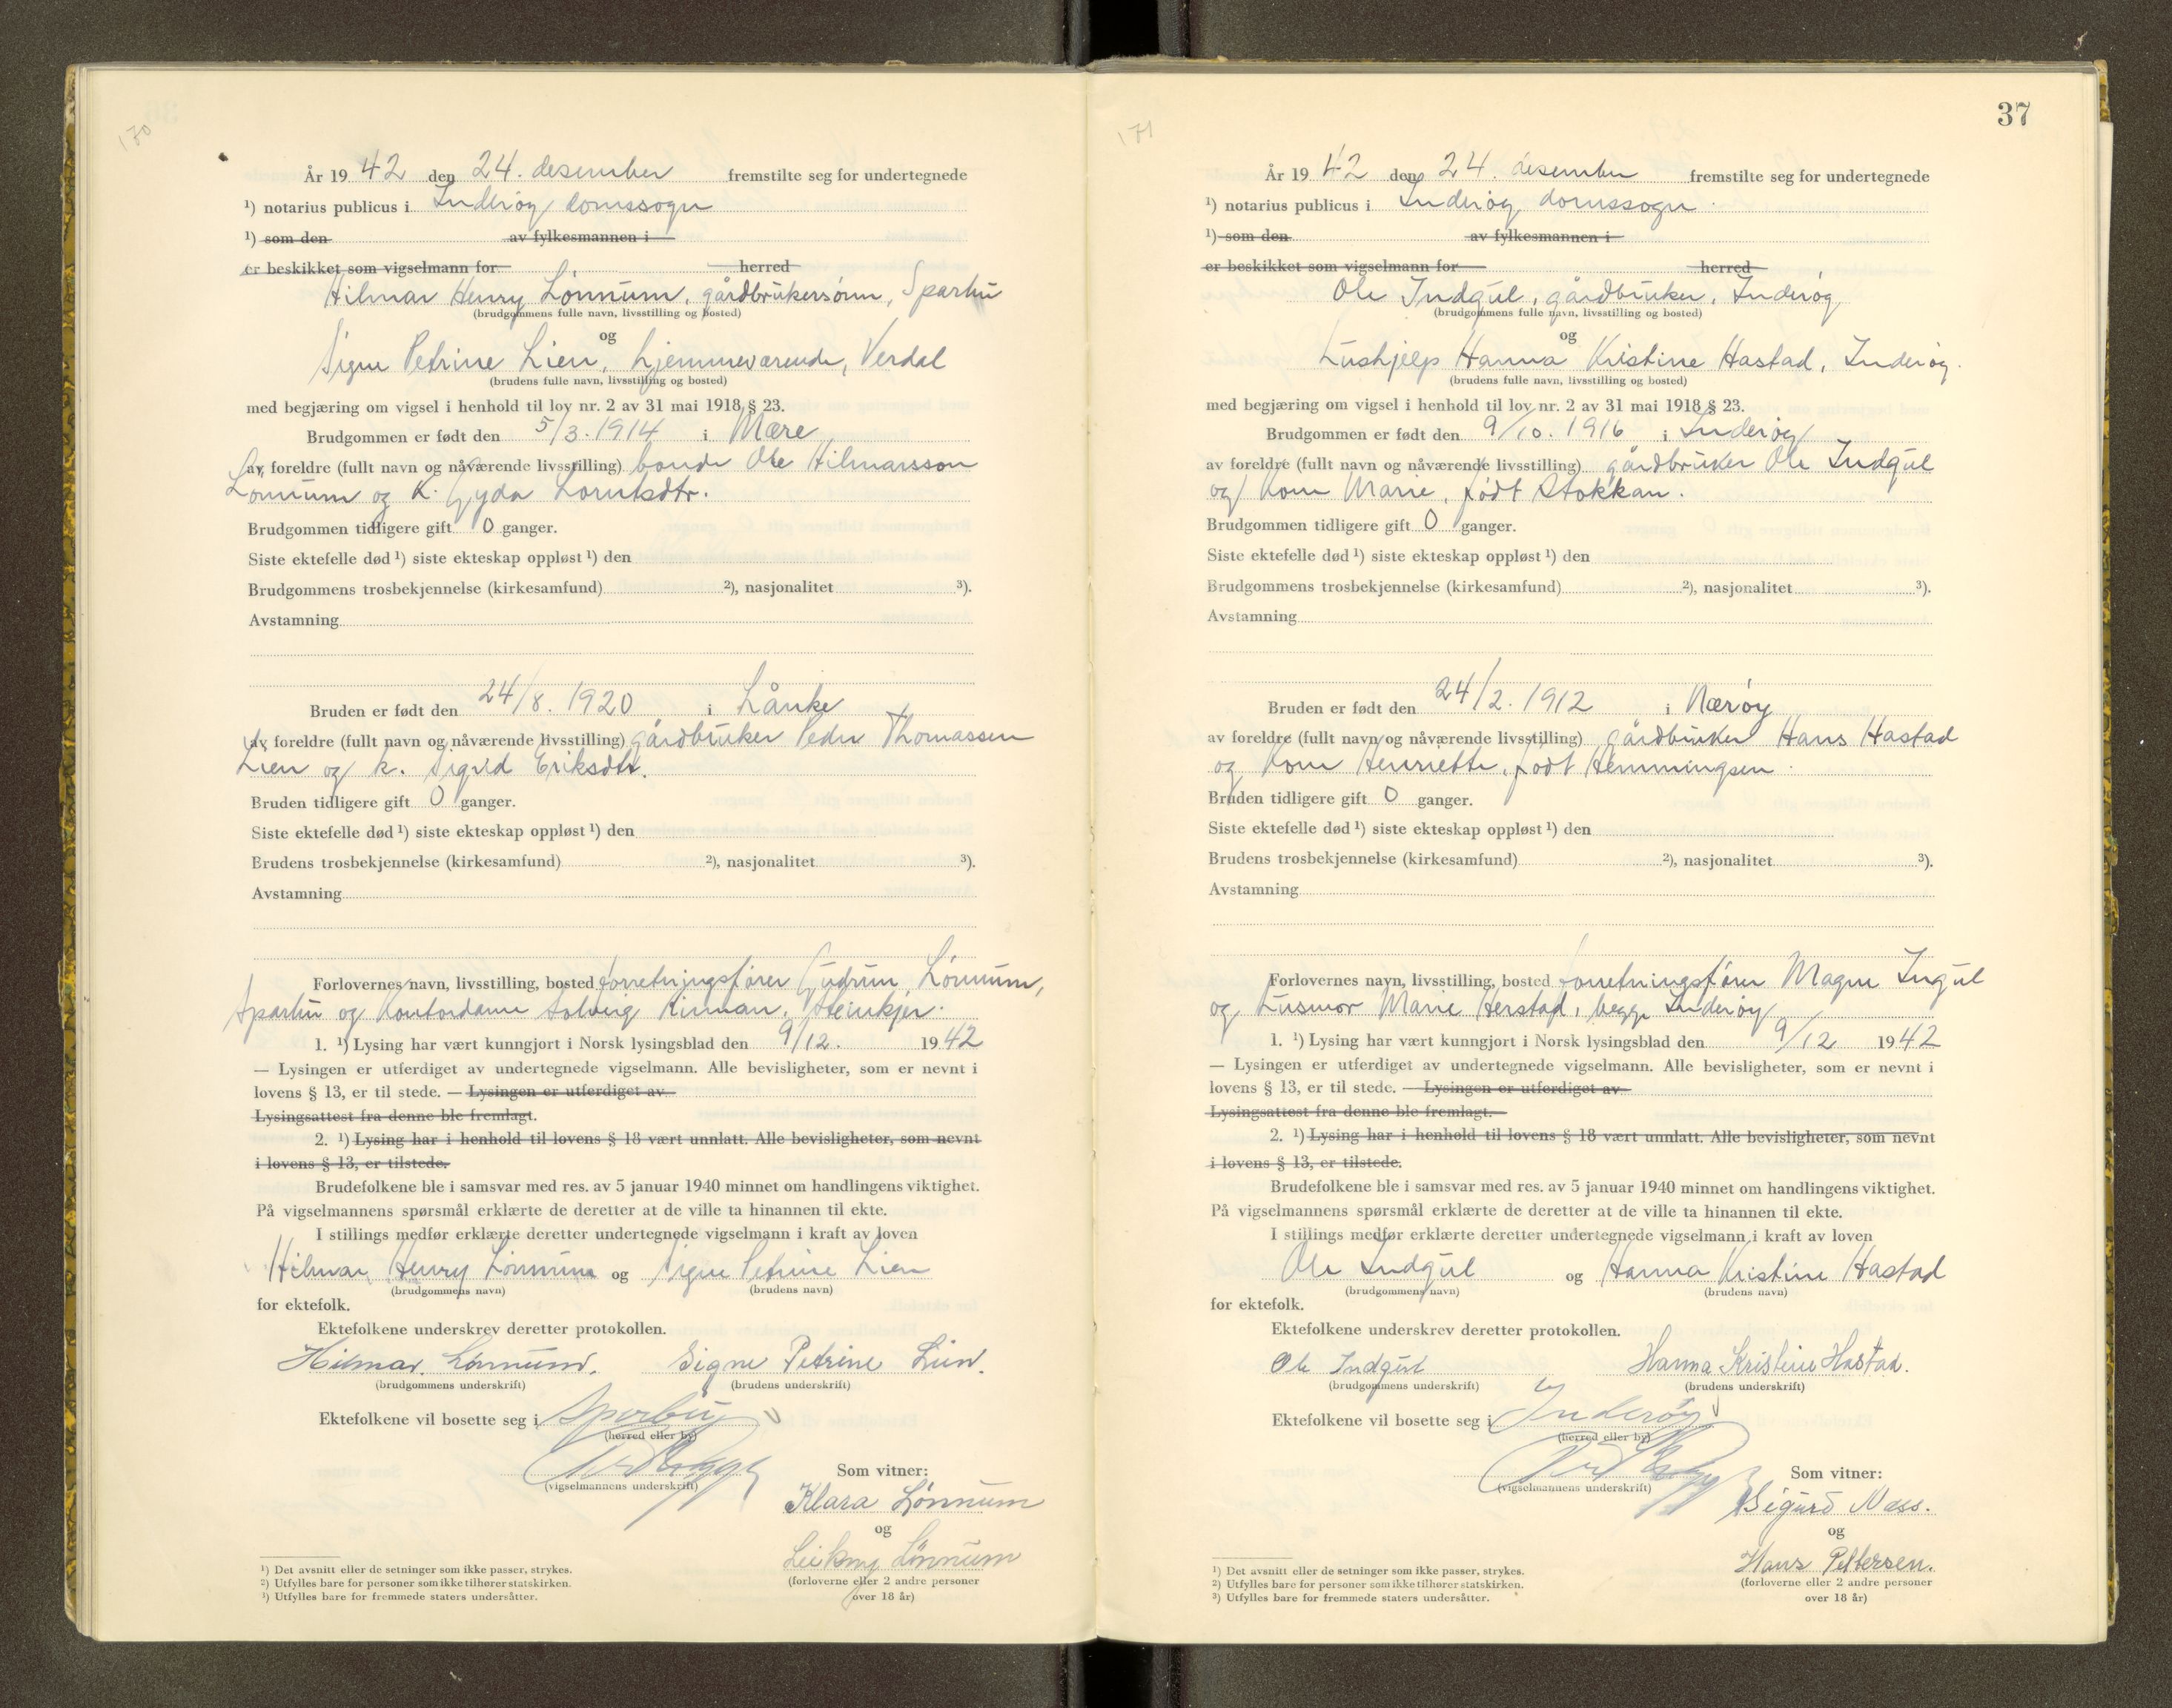 170
År 1942 den 24. desember fremstilte seg for undertegnede
¹) notarius publicus i Inderøy domssogn
¹) som den av fylkesmannen i
er beskikket som vigselmann for herred
Hilmar Henry Lønnum, gårdbrukersønn, Sparbu
(brudgommens fulle navn, livsstilling og bosted)
og
Signe Petrine Lien, hjemmeværende, Verdal
(brudens fulle navn, livsstilling og bosted)
med begjæring om vigsel i henhold til lov nr. 2 av 31 mai 1918 § 23.
Brudgommen er født den 5/3. 1914 i Mære
av foreldre (fullt navn og nåværende livsstilling) bonde Ole Hilmarsson
Lønnum og k. Gyda Lorntsdtr.
Brudgommen tidligere gift 0 ganger.
Siste ektefelle død ¹) siste ekteskap oppløst ¹) den
Brudgommens trosbekjennelse (kirkesamfund) ²), nasjonalitet ³).
Avstamning
Bruden er født den 24/8. 1920 i Lånke
av foreldre (fullt navn og nåværende livsstilling) gårdbruker Peder Thomassen
Lien og k. Sigrid Eriksdtr.
Bruden tidligere gift 0 ganger.
Siste ektefelle død ¹) siste ekteskap oppløst ¹) den
Brudens trosbekjennelse (kirkesamfund) ²), nasjonalitet ³).
Avstamning
Forlovernes navn, livsstilling, bosted forretningsfører Gudrun Lønnum,
Sparbu og kontordame Solveig Steinkjer.
1. ¹) Lysing har vært kunngjort i Norsk lysingsblad den 9/12. 1942
— Lysingen er utferdiget av undertegnede vigselmann. Alle bevisligheter, som er nevnt i
lovens § 13, er til stede. — Lysingen er utferdiget av
Lysingsattest fra denne ble fremlagt.
2. ¹) Lysing har i henhold til lovens § 18 vært unnlatt. Alle bevisligheter, som nevnt
i lovens § 13, er tilstede.
Brudefolkene ble i samsvar med res. av 5 januar 1940 minnet om handlingens viktighet.
På vigselmannens spørsmål erklærte de deretter at de ville ta hinannen til ekte.
I stillings medfør erklærte deretter undertegnede vigselmann i kraft av loven
Hilmar Henry Lønnum og Signe Petrine Lien
(brudgommens navn) (brudens navn)
for ektefolk.
Ektefolkene underskrev deretter protokollen.
Hilmar Lønnum. Signe Petrine Lien.
(brudgommens underskrift) (brudens underskrift)
Ektefolkene vil bosette seg i Sparbu
(herred eller by)
(vigselmannens underskrift)
Som vitner:
Klara Lønnum
og
Lønnum
(forloverne eller 2 andre personer
over 18 år)
¹) Det avsnitt eller de setninger som ikke passer, strykes.
²) Utfylles bare for personer som ikke tilhører statskirken.
³) Utfylles bare for fremmede staters undersåtter.
37
171
År 1942 den 24. desember fremstilte seg for undertegnede
¹) notarius publicus i Inderøy domssogn
¹) som den av fylkesmannen i
er beskikket som vigselmann for herred
Ole Indgul, gårdbruker, Inderøy
(brudgommens fulle navn, livsstilling og bosted)
og
Hushjelp Hanna Kristine Hastad, Inderøy.
(brudens fulle navn, livsstilling og bosted)
med begjæring om vigsel i henhold til lov nr. 2 av 31 mai 1918 § 23.
Brudgommen er født den 9/10. 1916 i Inderøy
av foreldre (fullt navn og nåværende livsstilling) gårdbruker Ole Indgul
og kone Marie, født Stokkan.
Brudgommen tidligere gift 0 ganger.
Siste ektefelle død ¹) siste ekteskap oppløst ¹) den
Brudgommens trosbekjennelse (kirkesamfund) ²), nasjonalitet ³).
Avstamning
Bruden er født den 24/2. 1912 i Nærøy
av foreldre (fullt navn og nåværende livsstilling) gårdbruker Hans Hastad
og kone Henriette, født Hemmingsen.
Bruden tidligere gift 0 ganger.
Siste ektefelle død ¹) siste ekteskap oppløst ¹) den
Brudens trosbekjennelse (kirkesamfund) ²), nasjonalitet ³).
Avstamning
Forlovernes navn, livsstilling, bosted forretningsfører Magne Ingul
og husmor Marie Herstad, begge Inderøy
1. ¹) Lysing har vært kunngjort i Norsk lysingsblad den 9/12 1942
— Lysingen er utferdiget av undertegnede vigselmann. Alle bevisligheter, som er nevnt i
lovens § 13, er til stede. — Lysingen er utferdiget av
Lysingsattest fra denne ble fremlagt.
2. ¹) Lysing har i henhold til lovens § 18 vært unnlatt. Alle bevisligheter, som nevnt
i lovens § 13, er tilstede.
Brudefolkene ble i samsvar med res. av 5 januar 1940 minnet om handlingens viktighet.
På vigselmannens spørsmål erklærte de deretter at de ville ta hinannen til ekte.
I stillings medfør erklærte deretter undertegnede vigselmann i kraft av loven
Ole Indgul og Hanna Kristine Hastad
(brudgommens navn) (brudens navn)
for ektefolk.
Ektefolkene underskrev deretter protokollen.
Ole Indgul Hanna Kristine Hastad.
(brudgommens underskrift) (brudens underskrift)
Ektefolkene vil bosette seg i Inderøy
(herred eller by)
(vigselmannens underskrift)
Som vitner:
Sigurd Næss.
og
Hans Pettersen.
(forloverne eller 2 andre personer
over 18 år)
¹) Det avsnitt eller de setninger som ikke passer, strykes.
²) Utfylles bare for personer som ikke tilhører statskirken.
³) Utfylles bare for fremmede staters undersåtter.